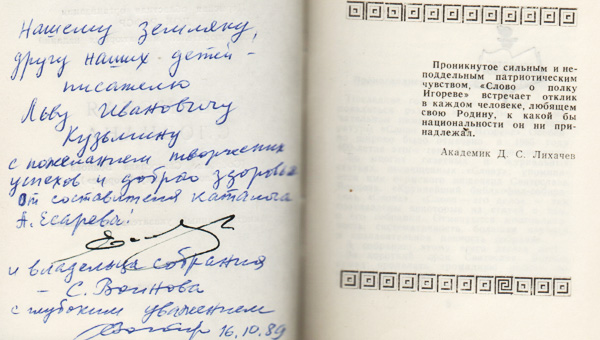 Нашему земляку,
другу наших детей –
писателю
Льву Ивановичу
Кузьмину
с пожеланием творческих
успехов и доброго здоровья
от составителя каталога
А. Есарева!
и владельца собрания
– С. Воинова
с глубоким уважением
16.10.89
Проникнутое сильным и не-
поддельным патриотическим
чувством, «Слово о полку
Игореве» встречает отклик
в каждом человеке, любящем
свою Родину, к какой бы
национальности он ни при-
надлежал.
Академик Д. С. Лихачев